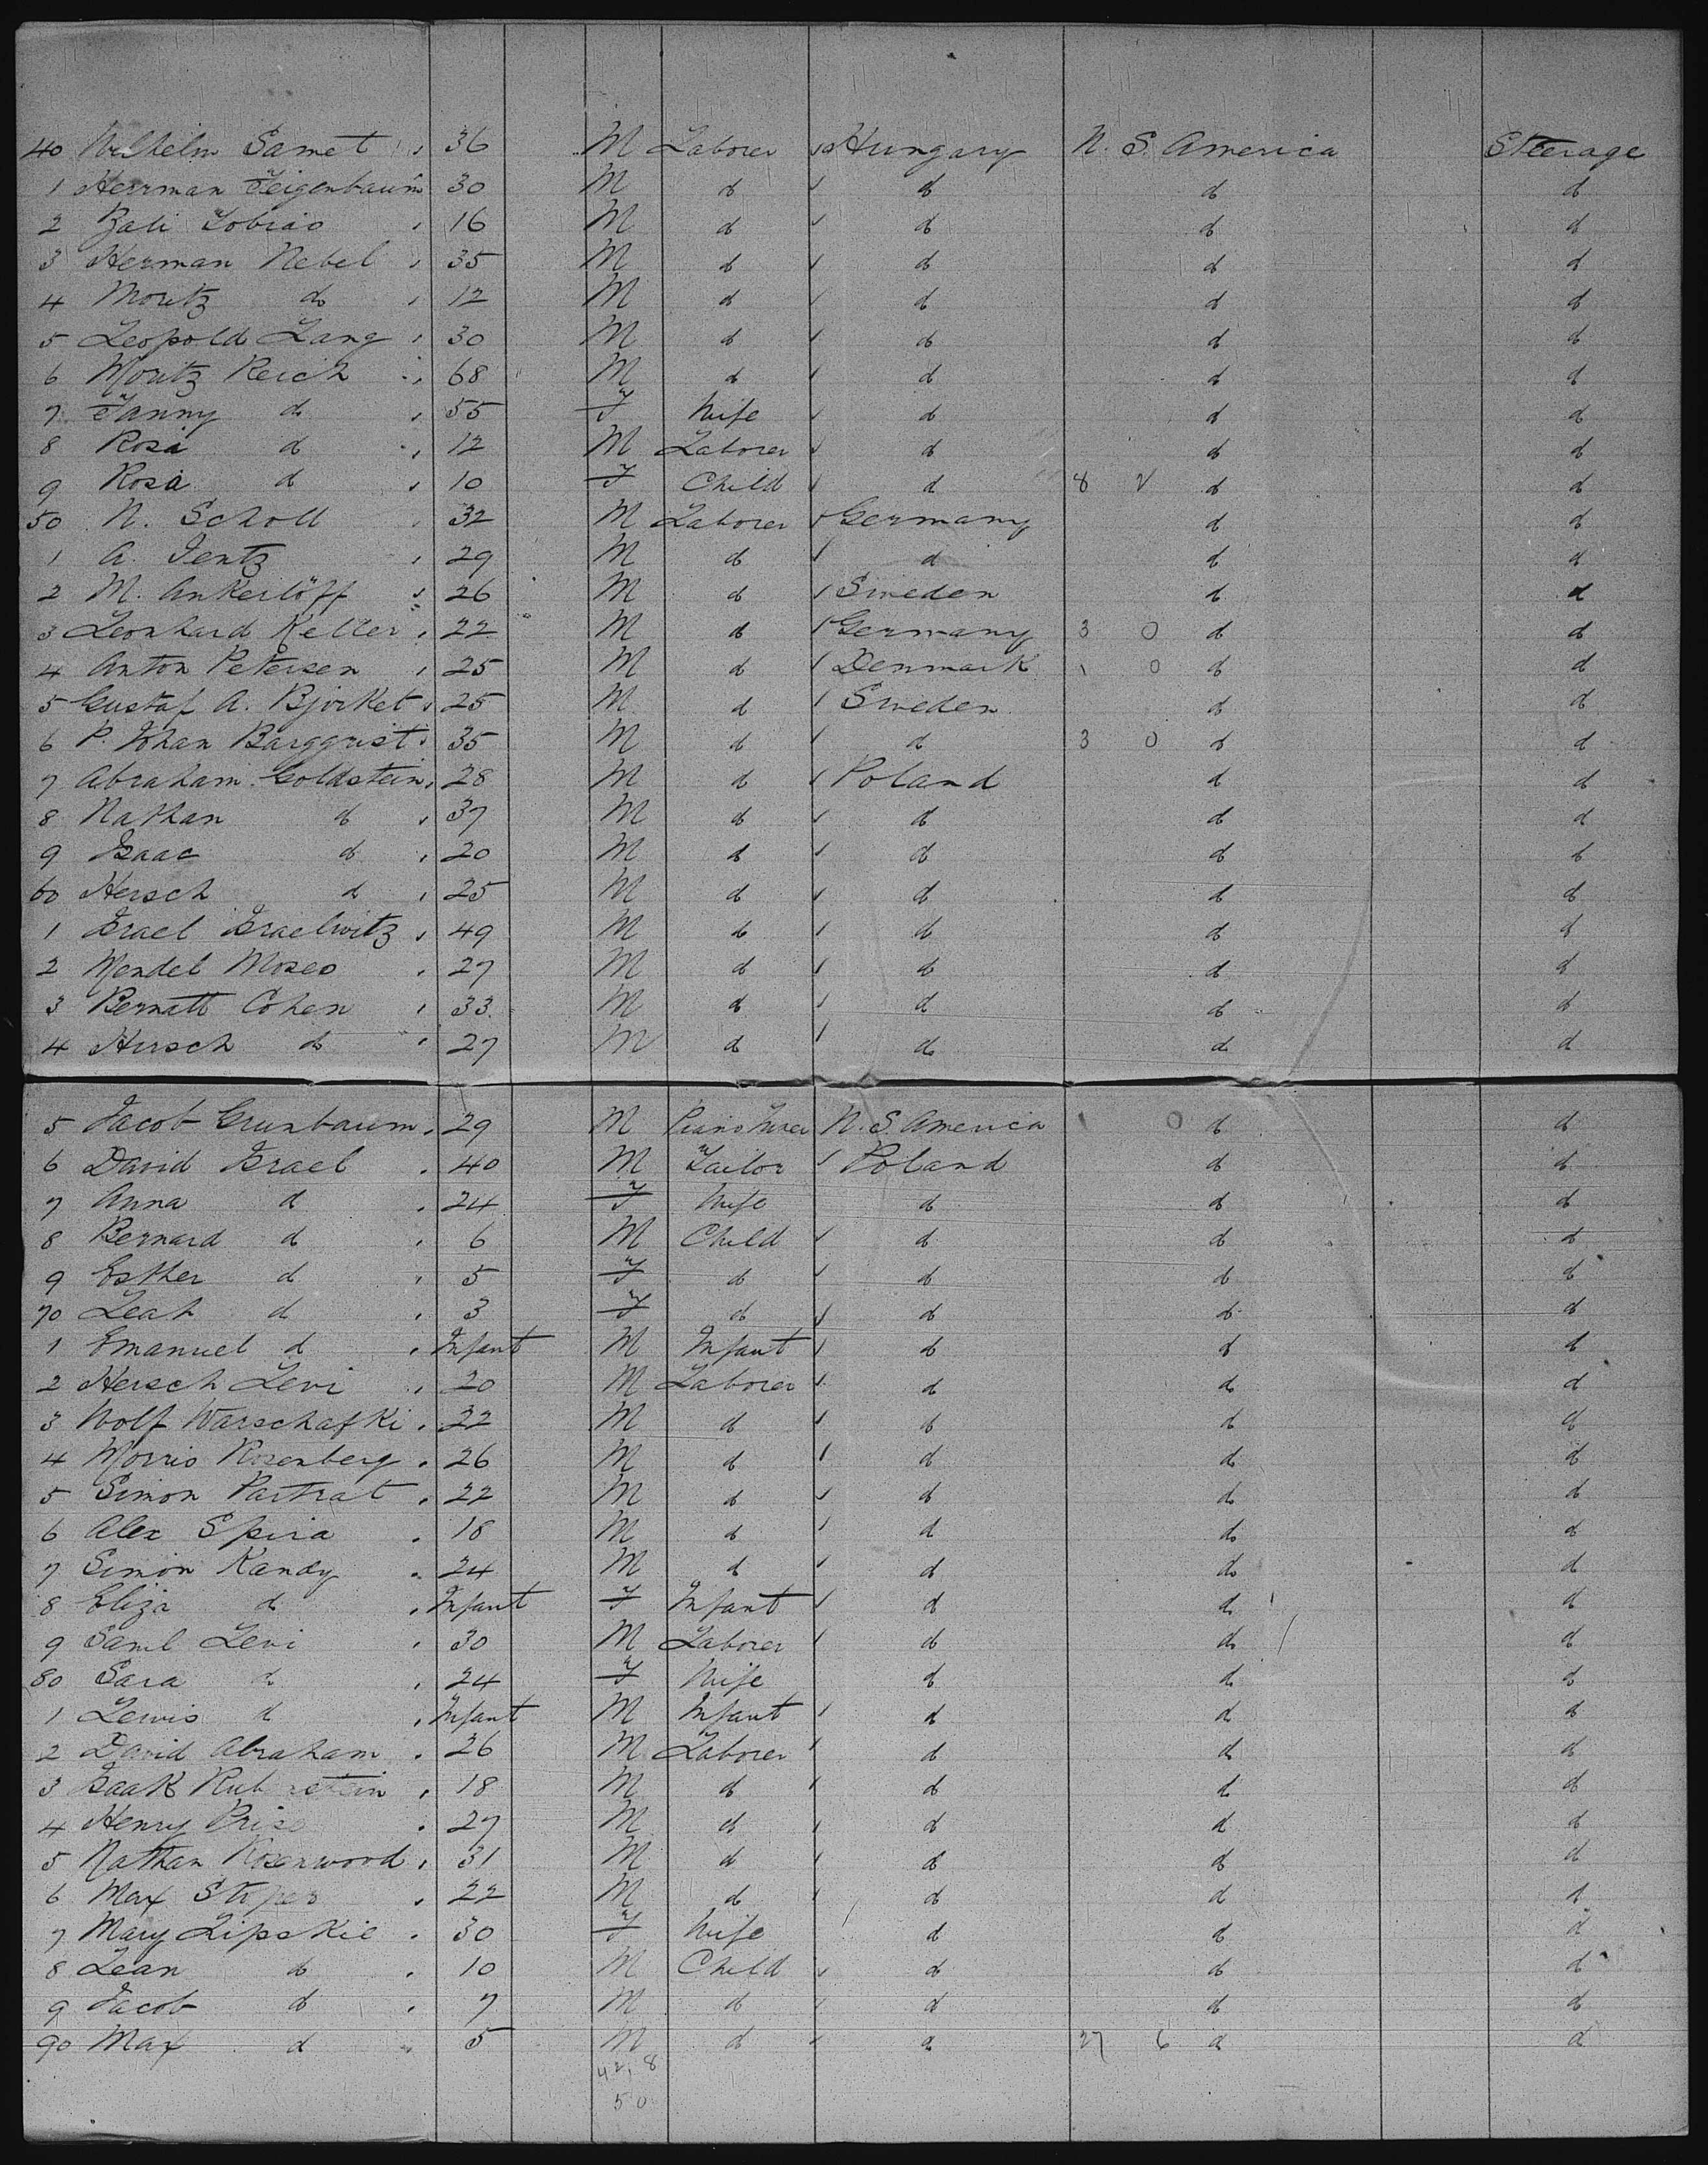 40 Wilhelm Samet 36 M Laborer Hungary N. S. America Steerage
1 Herrman Feigenbaum 30 M do do do do
2 Zali Tobias 16 M do do do do
3 Herman Nebel 35 M do do do do
4 Moritz do 12 M do do do do
5 Leopold Lang 30 M do do do do
6 Moritz Reich 68 M do do do do
7 Fanny do 55 F Wife do do do
8 Rosa do 12 M Laborer do do do
9 Rosa do 10 F Child do 8 2 do do
50 N. Scholl 32 M Laborer Germany do do
1 A. Jentz 29 M do do do do
2 M. Ankerlöff 26 M do Sweden do do
3 Leonhard Keller 22 M do Germany 3 0 do do
4 Anton Petersen 25 M do Denmark 1 0 do do
5 Gustaf A. Bjorket 25 M do Sweden do do
6 P. Johan Bargqrist 35 M do do 3 0 do do
7 Abraham Goldstein 28 M do Poland do do
8 Nathan do 37 M do do do do
9 Isaac do 20 M do do do do
60 Hersch do 25 M do do do do
1 Israel Israelwitz 49 M do do do do
2 Mendel Moses 27 M do do do do
3 Bernatt Cohen 33 M do do do do
4 Hirsch do 27 M do do do do
5 Jacob Grunbaum 29 M N. S. America 0 do do
6 David Israel 40 M Tailor Poland do do
7 Anna do 24 F Wife do do do
8 Bernard do 6 M Child do do do
9 Esther do 5 F do do do do
70 Leah do 3 F do do do do
1 Emanuel do Infant M Infant do do do
2 Hersch Levi 20 M Laborer do do do
3 Wolf Warschafki 22 M do do do do
4 Morris Rosenberg 26 M do do do do
5 Simon Partrat 22 M do do do do
6 Alex Spira 18 M do do do do
7 Simon Kandy 24 M do do do do
8 Eliza do Infant F Infant do do do
9 Saml Levi 30 M Laborer do do do
80 Sara do 24 F Wife do do do
1 Lewis do Infant M Infant do do do
2 David Abraham 26 M Laborer do do do
3 Isaak 18 M do do do do
4 Henry 27 M do do do do
5 Nathan Rosenwood 31 M do do do do
6 Max 22 M do do do do
7 Mary Lipskie 30 F Wife do do do
8 Lean do 10 M Child do do do
9 Jacob do 7 M do do do do
90 Max do 5 M do do 27 6 do do
42, 8
50